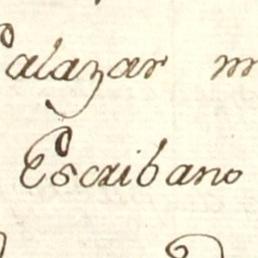 Salazar
Escribano